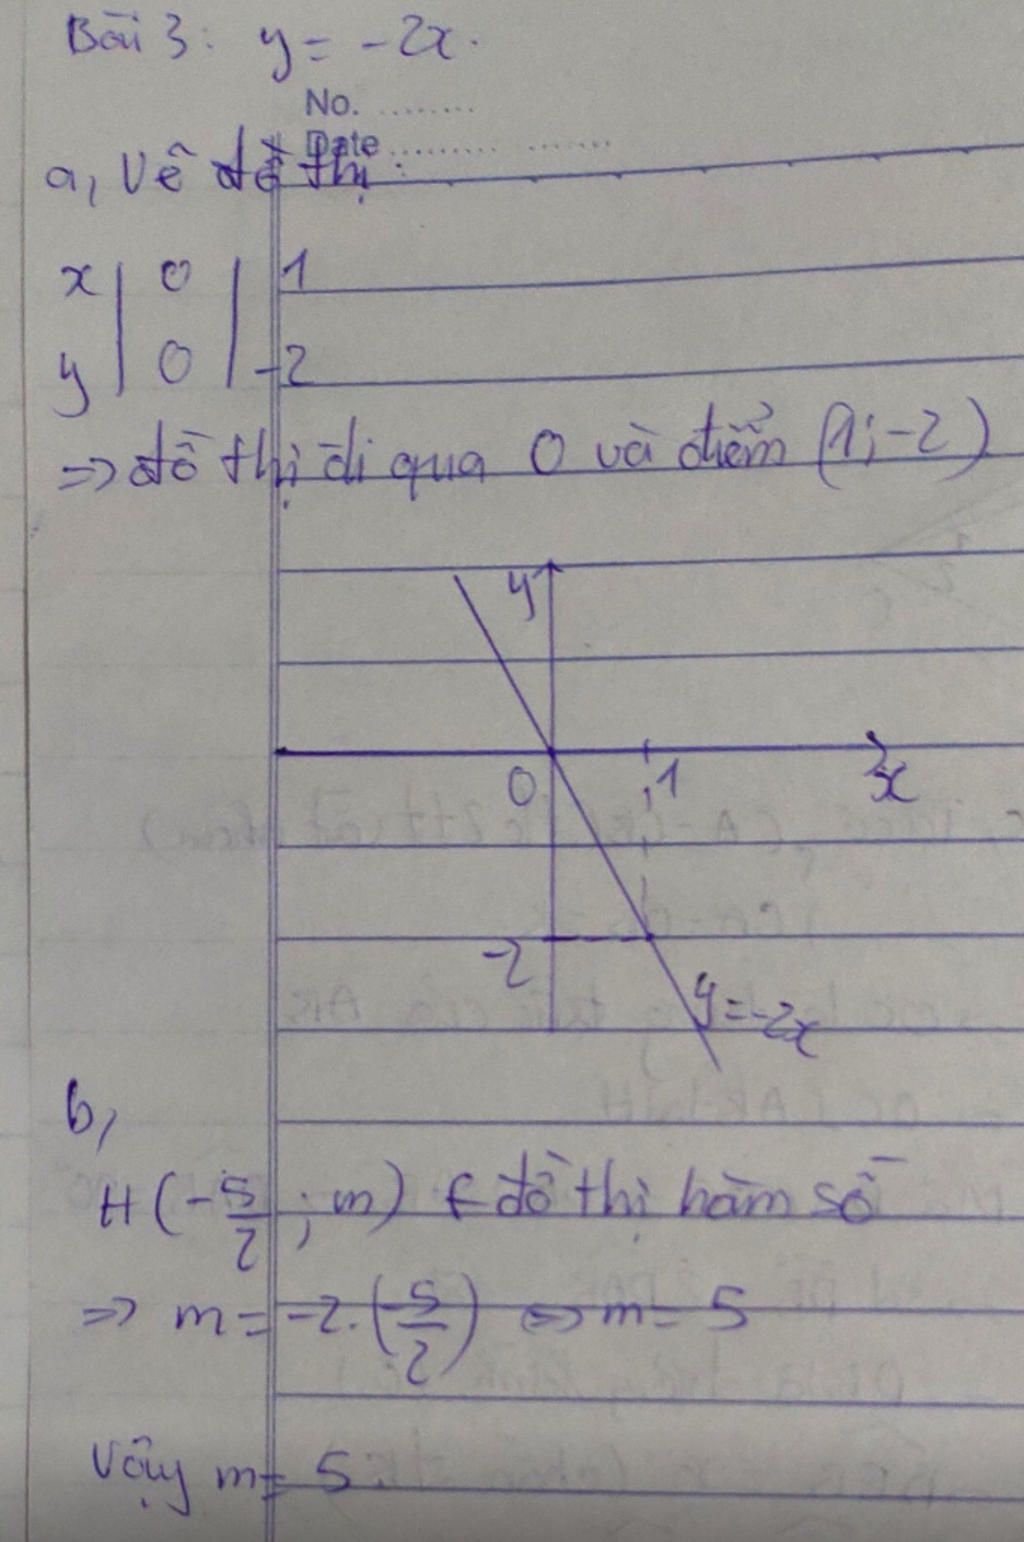 Bài 3: y = -2x.
No. ........
Date ......... .......
a, Vẽ đồ thị:
x | 0 | 1
y | 0 | -2
=> đồ thị đi qua O và điểm (1; -2)
y
0 1 x
-2
y = -2x
b,
H(-5/2; m) ∈ đồ thị hàm số
=> m = -2.(-5/2) <=> m = 5
Vậy m = 5